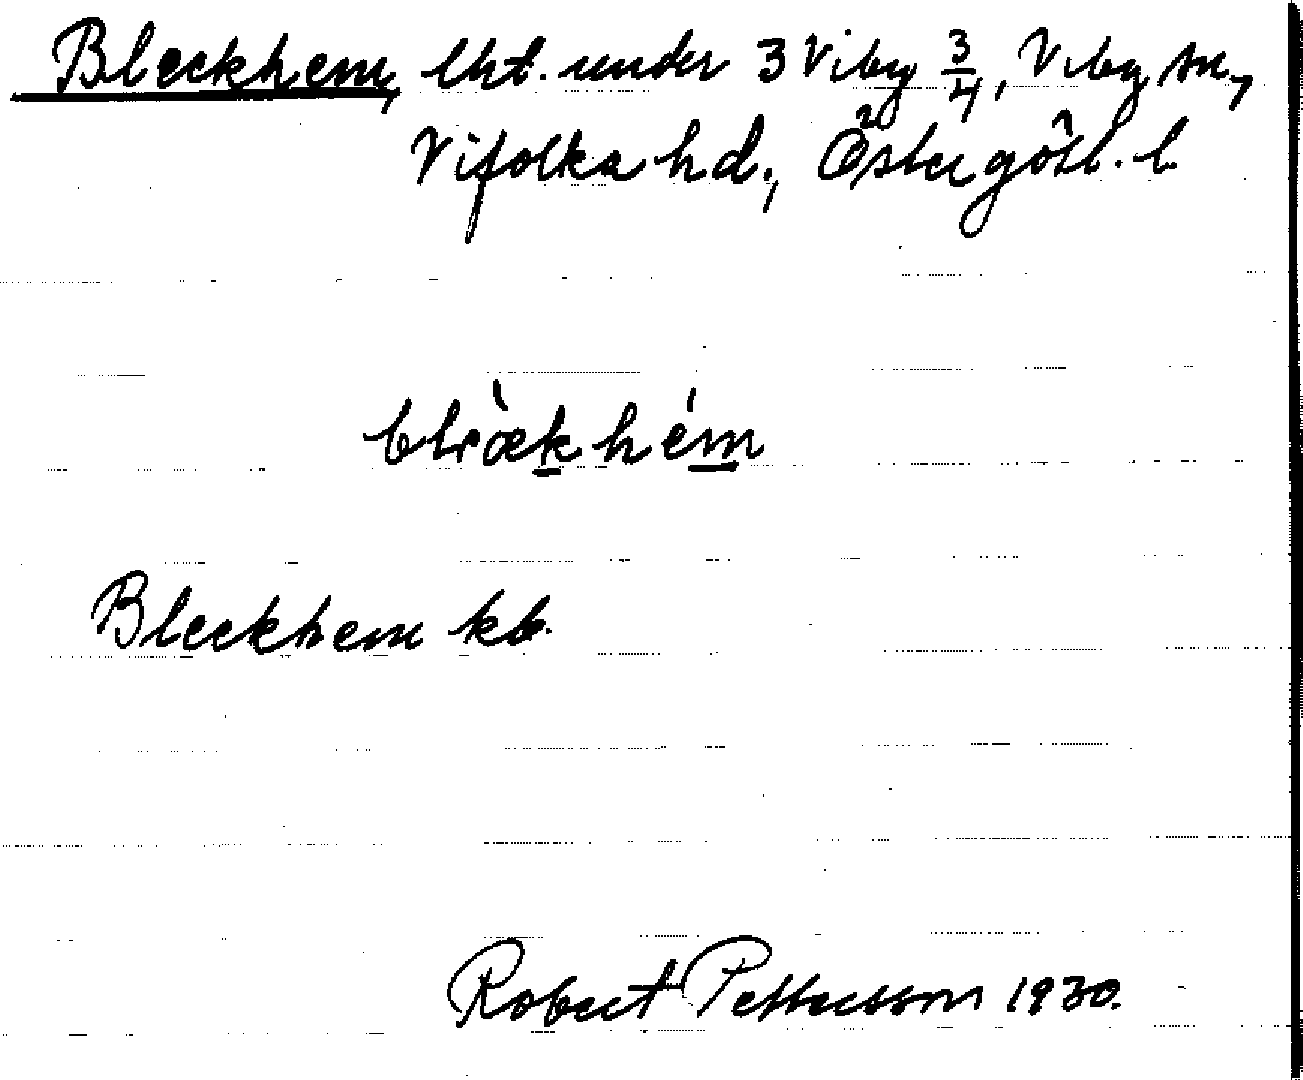 Bleckhem, lht. under 3 Viby 3/4, Viby sn,
Vifolka hd., Östergötl. l.
blæ̀khém
Bleckhem kb.
Robert Pettersson 1930.